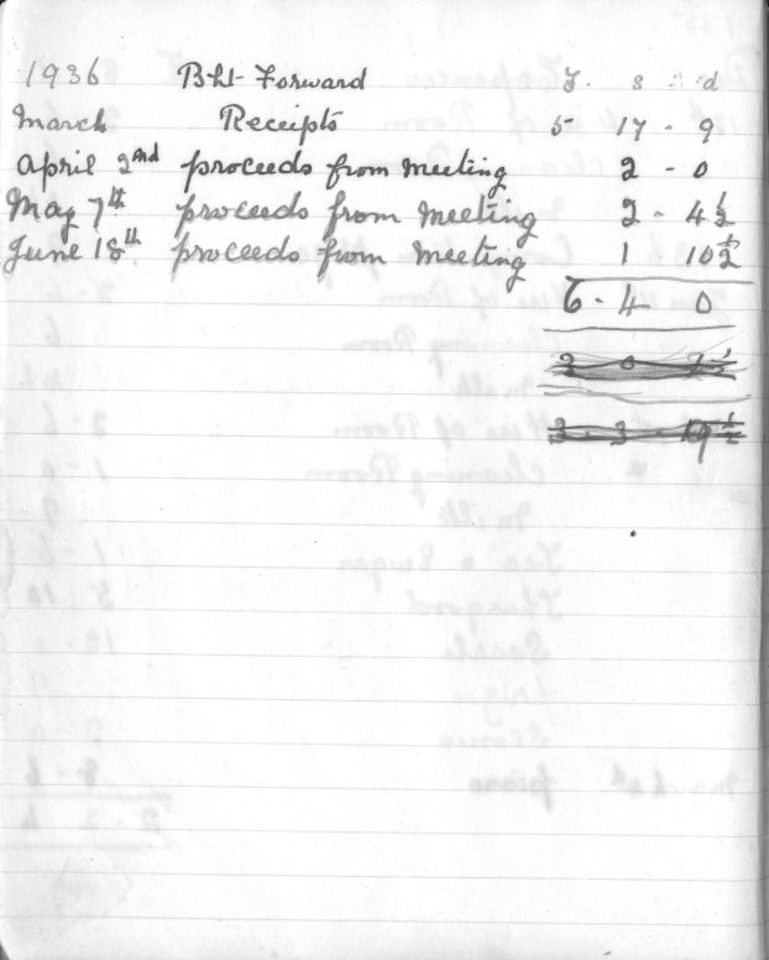 1936 Bht Forward £. s d
March Receipts 5 17 - 9
April 2nd proceeds from meeting 2 - 0
May 7th proceeds from meeting 2 - 4½
June 18th proceeds from meeting 1 10½
6 - 4 0